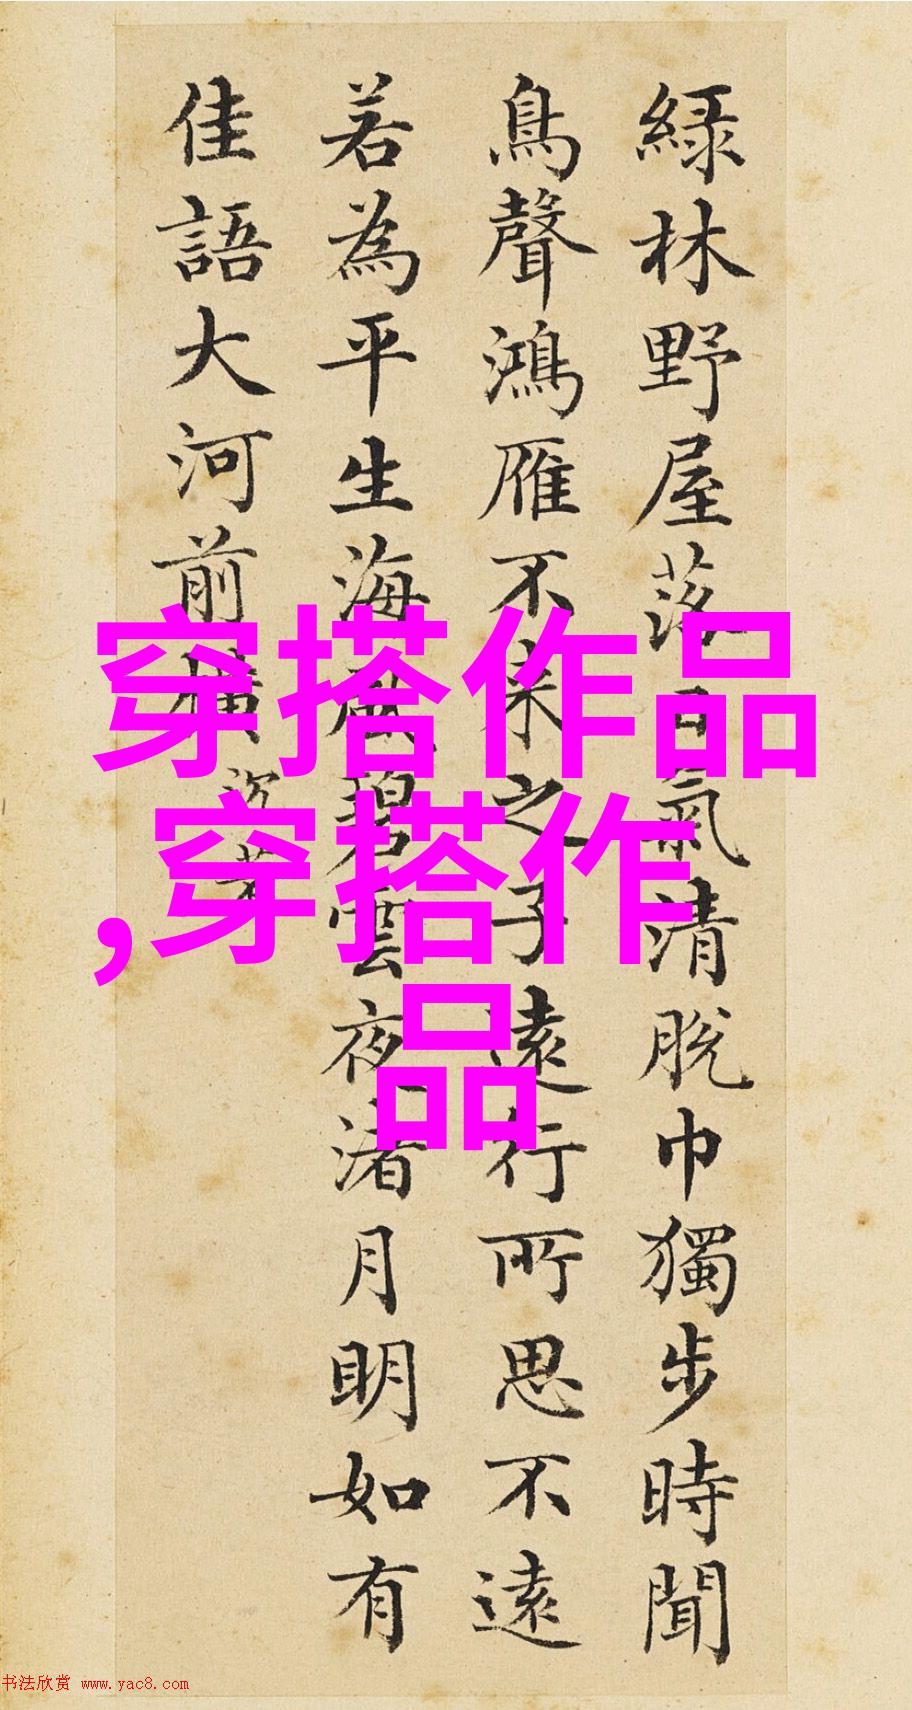 綠林野屋落日氣清脫巾獨步時聞
鳥聲鴻雁不来之子遠行所思不遠
若為平生海風碧雲夜渚月明如有
佳語大河前橫
穿搭作品
,穿搭作
品
书法欣赏 www.yac8.com